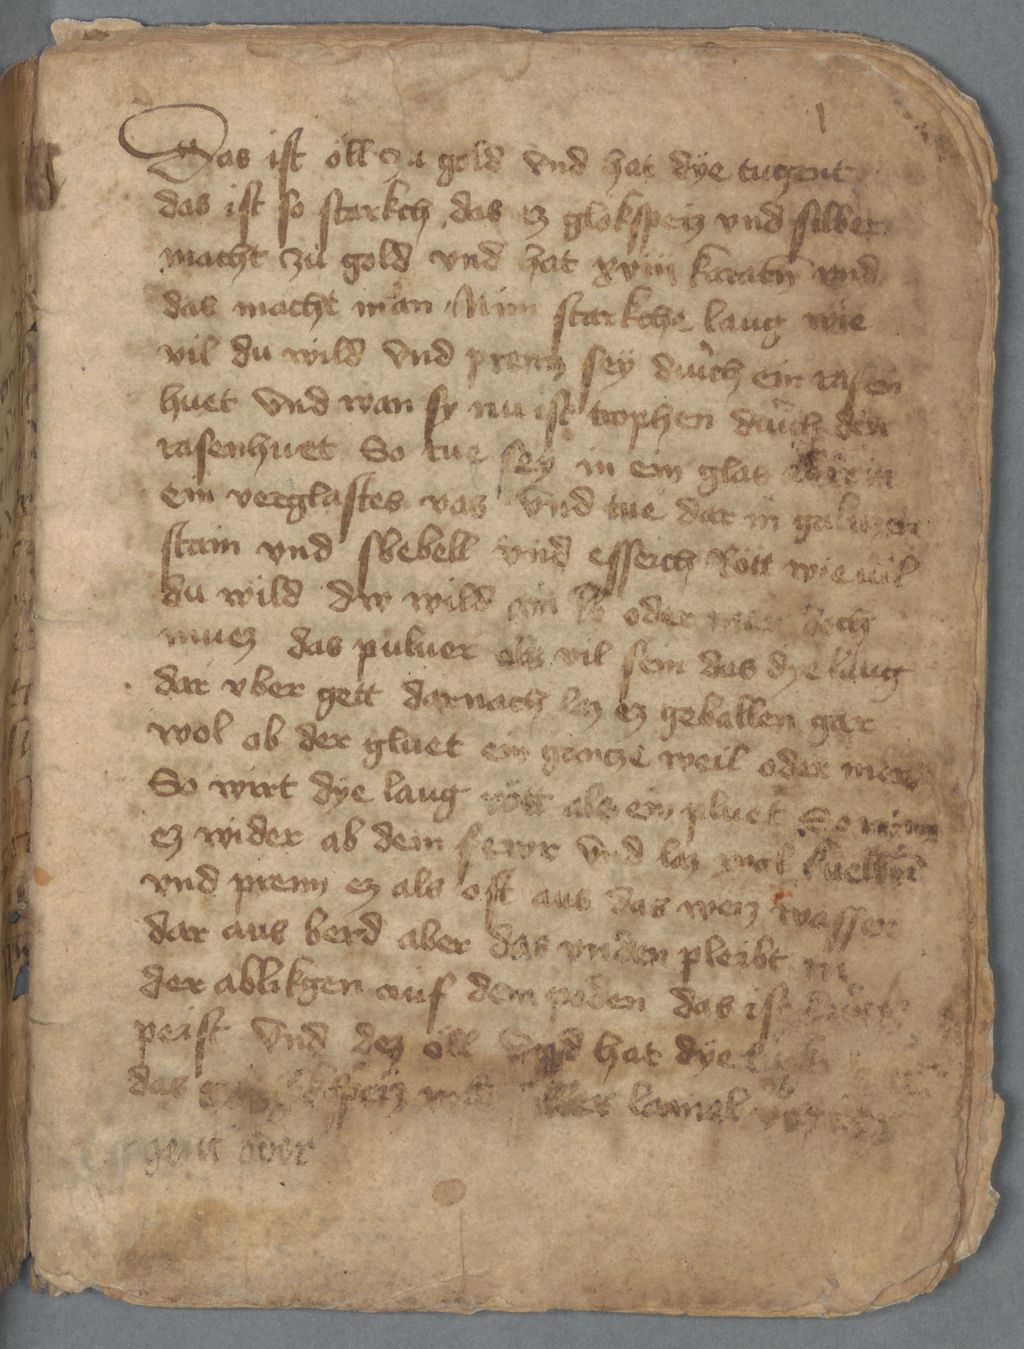 1
Das ist öll zu gold vnd hat dye tugent
das ist so starkch das ez glokspeiz vnd silber
macht zu gold vnd hat xviij karatn vnd
das macht man Nim starkche laug wie
vil du wild vnd prenn sey durch ein rasen
huet vnd wan sy nu ist trophen durch den
rasenhuet So tue sey in ein glas in
ein verglastes vas vnd tue dar in galiczen
stain vnd swebell vnd essich Rott wie uil
du wild dw wild ein lb oder mer doch
muez das puluer als vil sein das dye laug
dar vber gett darnach laz ez geballen gar
wol ob der gluet ein gancze weil oder mer
So wirt dye laug rott als ein pluet So nim
ez wider ab dem fewr vnd laz wol kuelln
vnd prenn ez als oft aus das weiz wasser
dar aus berd aber das vnden pleibt in
der ablikgen auf dem poden das ist
peist vnd dez öll vnd hat dye
das lamel
gent över